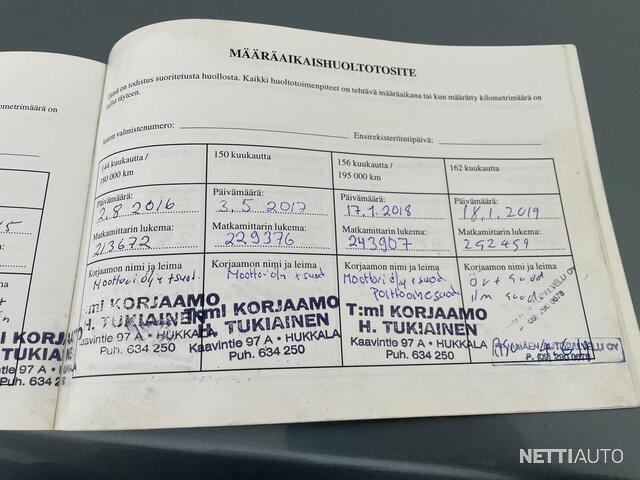 MÄÄRÄAIKAISHUOLTOTOSITE
Tämä on todistus suoritetusta huollosta. Kaikki huoltotoimenpiteet on tehtävä määräaikana tai kun määrätty kilometrimäärä on
tullut täyteen.
ometrimäärä on
Auton valmistenumero:
Ensirekisteröintipäivä:
144 kuukautta /
180 000 km
Päivämäärä:
2.8 2016
Matkamittarin lukema:
213672
Korjaamon nimi ja leima
Moottoriöljy + suod.
T:mi KORJAAMO
H. TUKIAINEN
Kaavintie 97 A • HUKKALA
Puh. 634 250
150 kuukautta
Päivämäärä:
3.5 2017
Matkamittarin lukema:
229376
Korjaamon nimi ja leima
Moottoriöln + suod
T:mi KORJAAMO
H. TUKIAINEN
Kaavintie 97 A • HUKKALA
Puh. 634 250
156 kuukautta /
195 000 km
Päivämäärä:
17.1 2018
Matkamittarin lukema:
243907
Korjaamon nimi ja leima
Moottoriöljy + suod.
Polttoainesuod
T:mi KORJAAMO
H. TUKIAINEN
Kaavintie 97 A • HUKKALA
Puh. 634 250
162 kuukautta
Päivämäärä:
18.1.2019
Matkamittarin lukema:
252459
Korjaamon nimi ja leima
öv + suod
ilm suod
i KORJAAMO
TUKIAINEN
vintie 97 A • HUKKALA
Puh. 634 250
NETTIAUTO